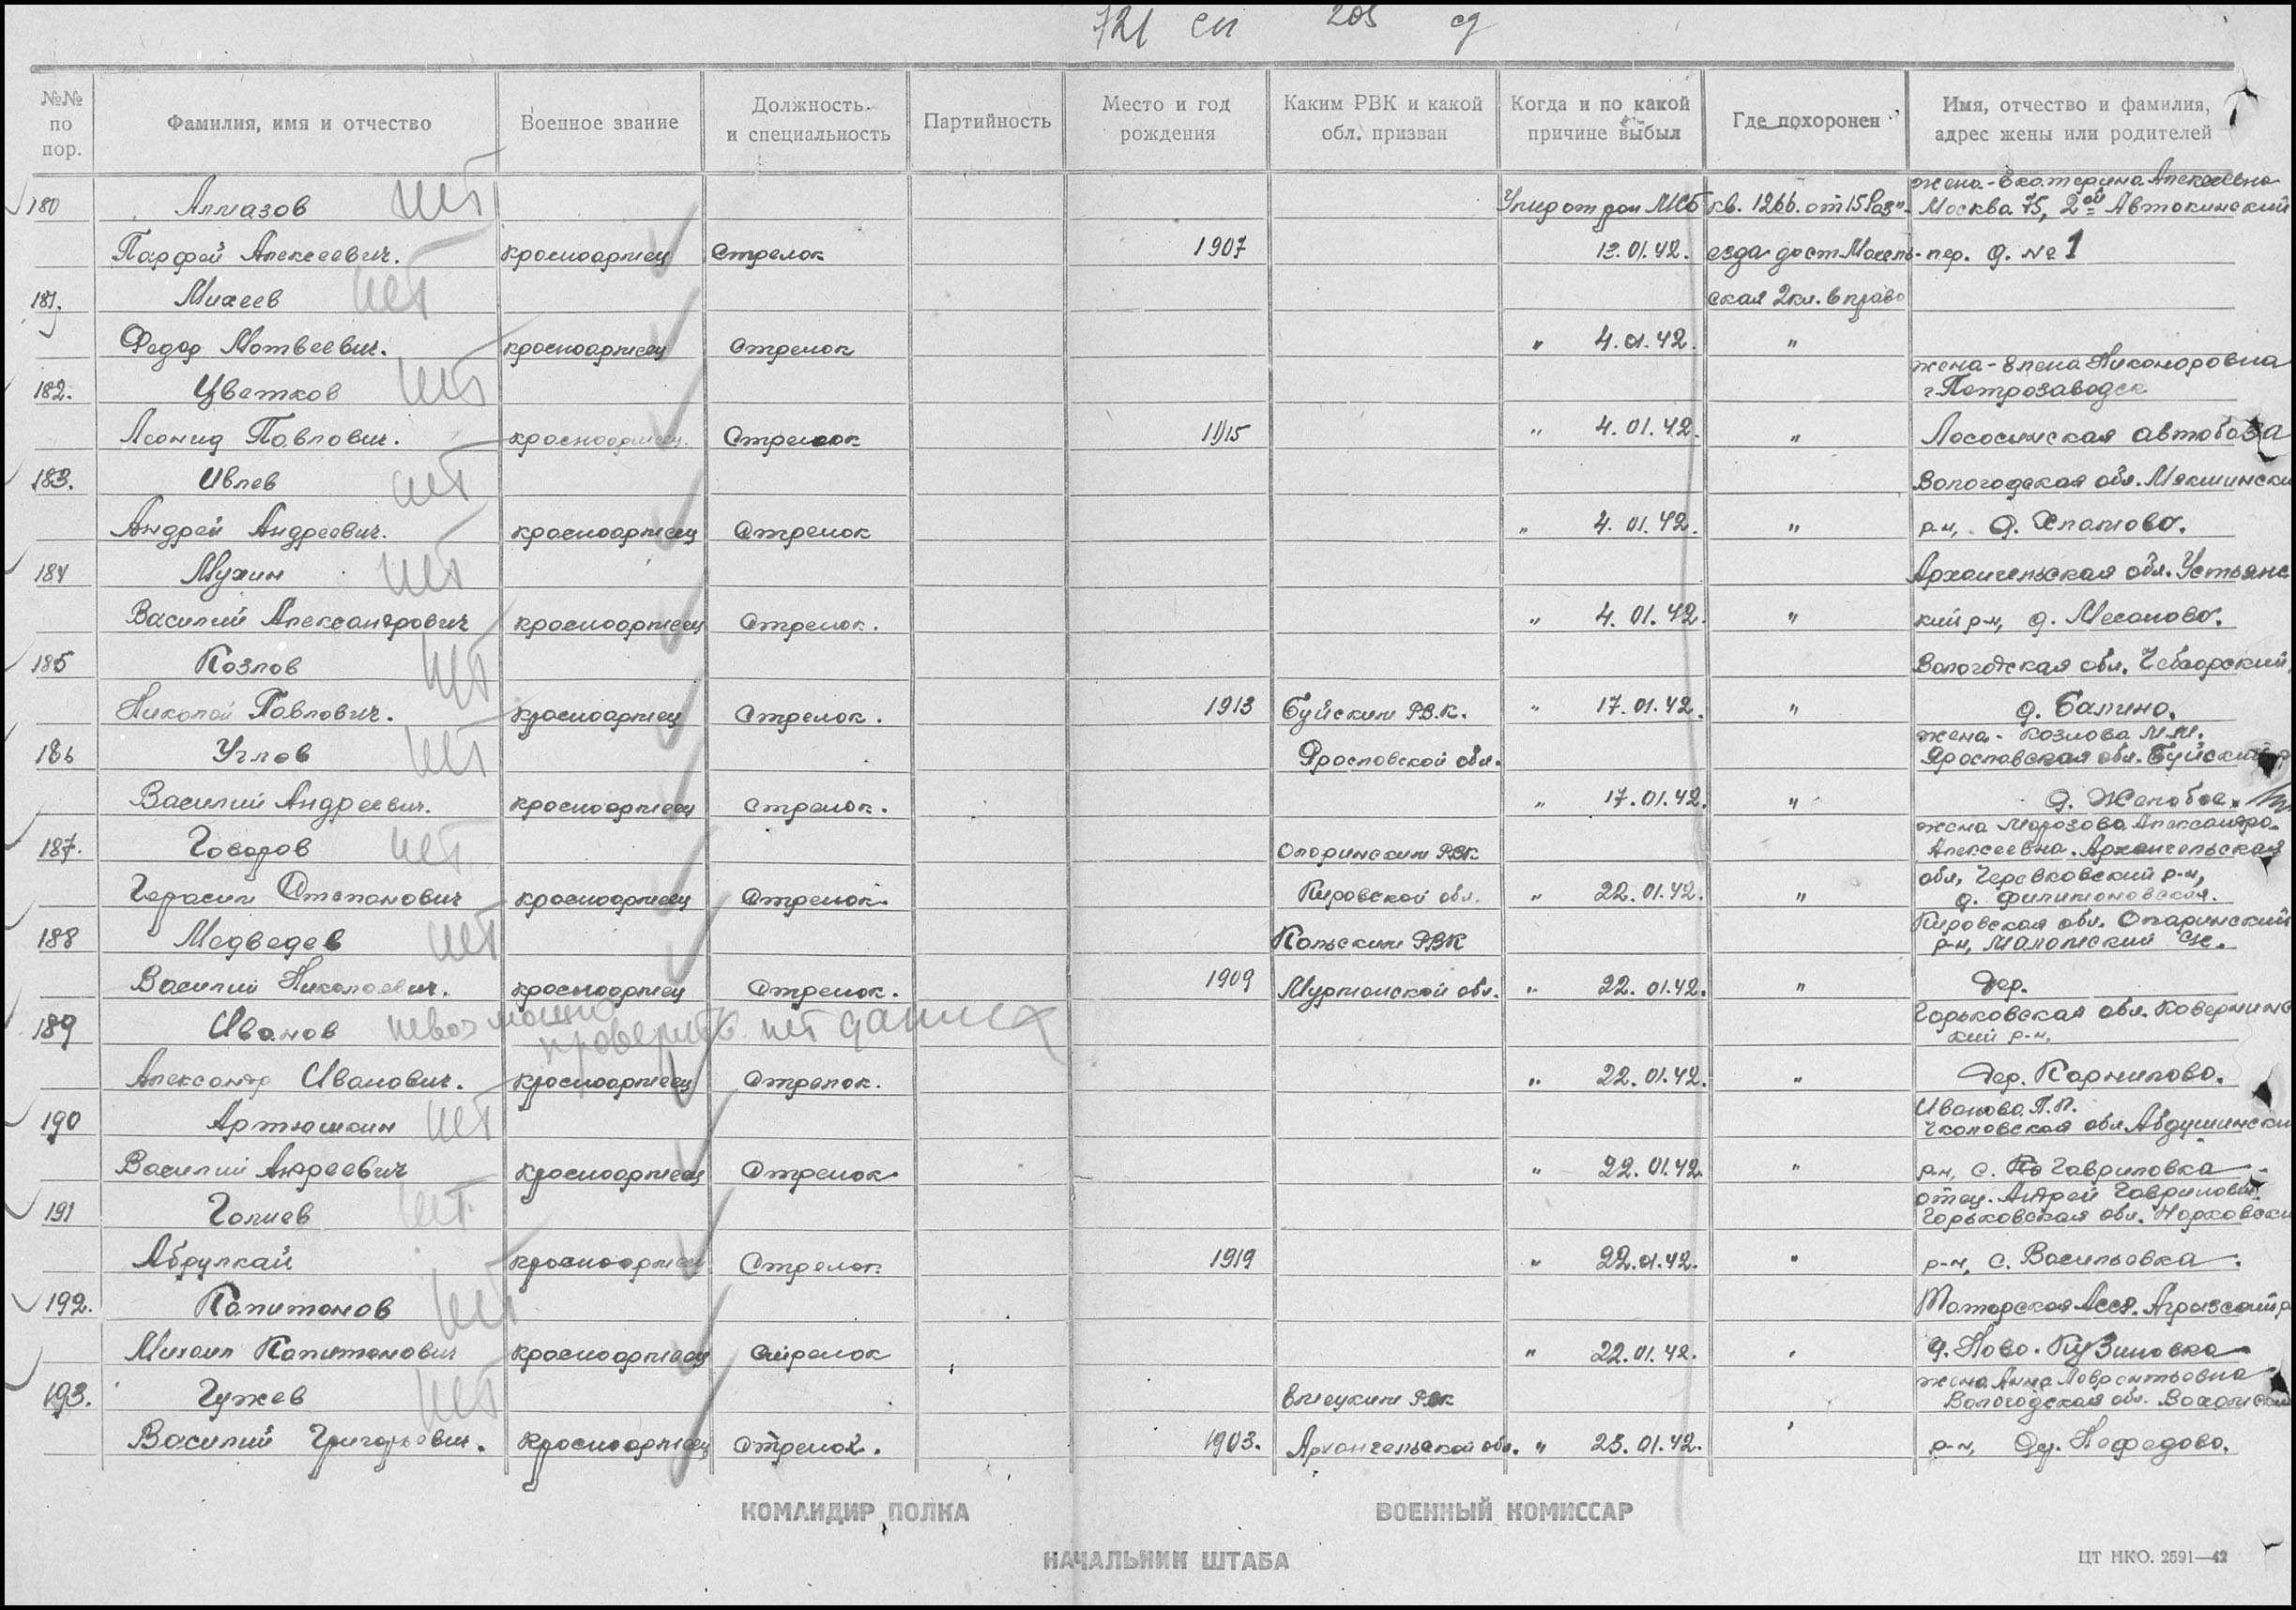 721 сп 205 сд
№№ по пор.
Фамилия, имя и отчество
Военное звание
Должность и специальность
Партийность
Место и год рождения
Каким РВК и какой обл. призван
Когда и по какой причине выбыл
Где похоронен
Имя, отчество и фамилия, адрес жены или родителей
жена - Екатерина Алексеевна
180 Алмазов нет кв. 1266. от 15 Раз"- Москва 75, 2ой
Парфей Алексеевич. красноармеец Стрелок 1907 13.01.42. езда до ст. - пер. д. № 1
181. Михеев нет ская 2кл. вправо
Федор Матвеевич. красноармеец Стрелок " 4.01.42. "
жена - Елена Никаноровна
182. Цветков нет г. Петрозаводск
Леонид Павлович. красноармеец. Стрелок 1915 " 4.01.42. " Лососинская автобаза
183. Ивлев нет Вологодская обл. Мякшински
Андрей Андреевич. красноармеец Стрелок " 4.01.42. " р-н, д.
184 Мухин нет Архангельская обл. Устьянс
Василий Александрович красноармеец Стрелок. " 4.01.42. " кий р-н, д.
185 Козлов нет Вологодская обл. Чебсарский
Николай Павлович. красноармеец Стрелок. 1913 Буйским РВК. " 17.01.42. " д. Балино.
жена - Козлова М.М.
186 Углов нет Ярославской обл. Ярославская обл. Буйский
Василий Андреевич. красноармеец Стрелок. " 17.01.42. " д.
жена Морозова Александра
187. Говоров нет Опаринским РВК Алексеевна. Архангельская
обл, Черевковский р-н,
Герасим Степанович красноармеец Стрелок. Кировской обл. " 22.01.42. " д. Филимоновская.
Кировская обл. Опаринский
188 Медведев нет Кольским РВК р-н,
Василий Николаевич. красноармеец Стрелок. 1909 Мурманской обл. " 22.01.42. " дер.
189 Иванов невозможно проверить. нет данных Горьковская обл. Ковернинс
кий р-н,
Александр Иванович. красноармеец Стрелок. " 22.01.42. " дер. Корнилово.
Иванова П.П.
190 Артюшкин нет Чкаловская обл. Абдулински
Василий Андреевич красноармеец Стрелок " 22.01.42 " р-н, с. Гавриловка
отец. Андрей Гаврилович
191 Галиев нет Горьковская обл.
Абдулхай красноармеец Стрелок 1919 " 22.01.42. " р-н, с. Васильевка.
192. Капитонов нет Татарская АССР.
Михаил Капитонович красноармеец Стрелок " 22.01.42. "
жена Анна Лаврентьевна
193. Гужев нет РВК Вологодская обл.
Василий Григорьевич. Красноармеец Стрелок. 1903. Архангельской обл. " 23.01.42. " р-н, дер. Нефедово.
КОМАНДИР ПОЛКА
ВОЕННЫЙ КОМИССАР
НАЧАЛЬНИК ШТАБА
ЦТ НКО. 2591—42